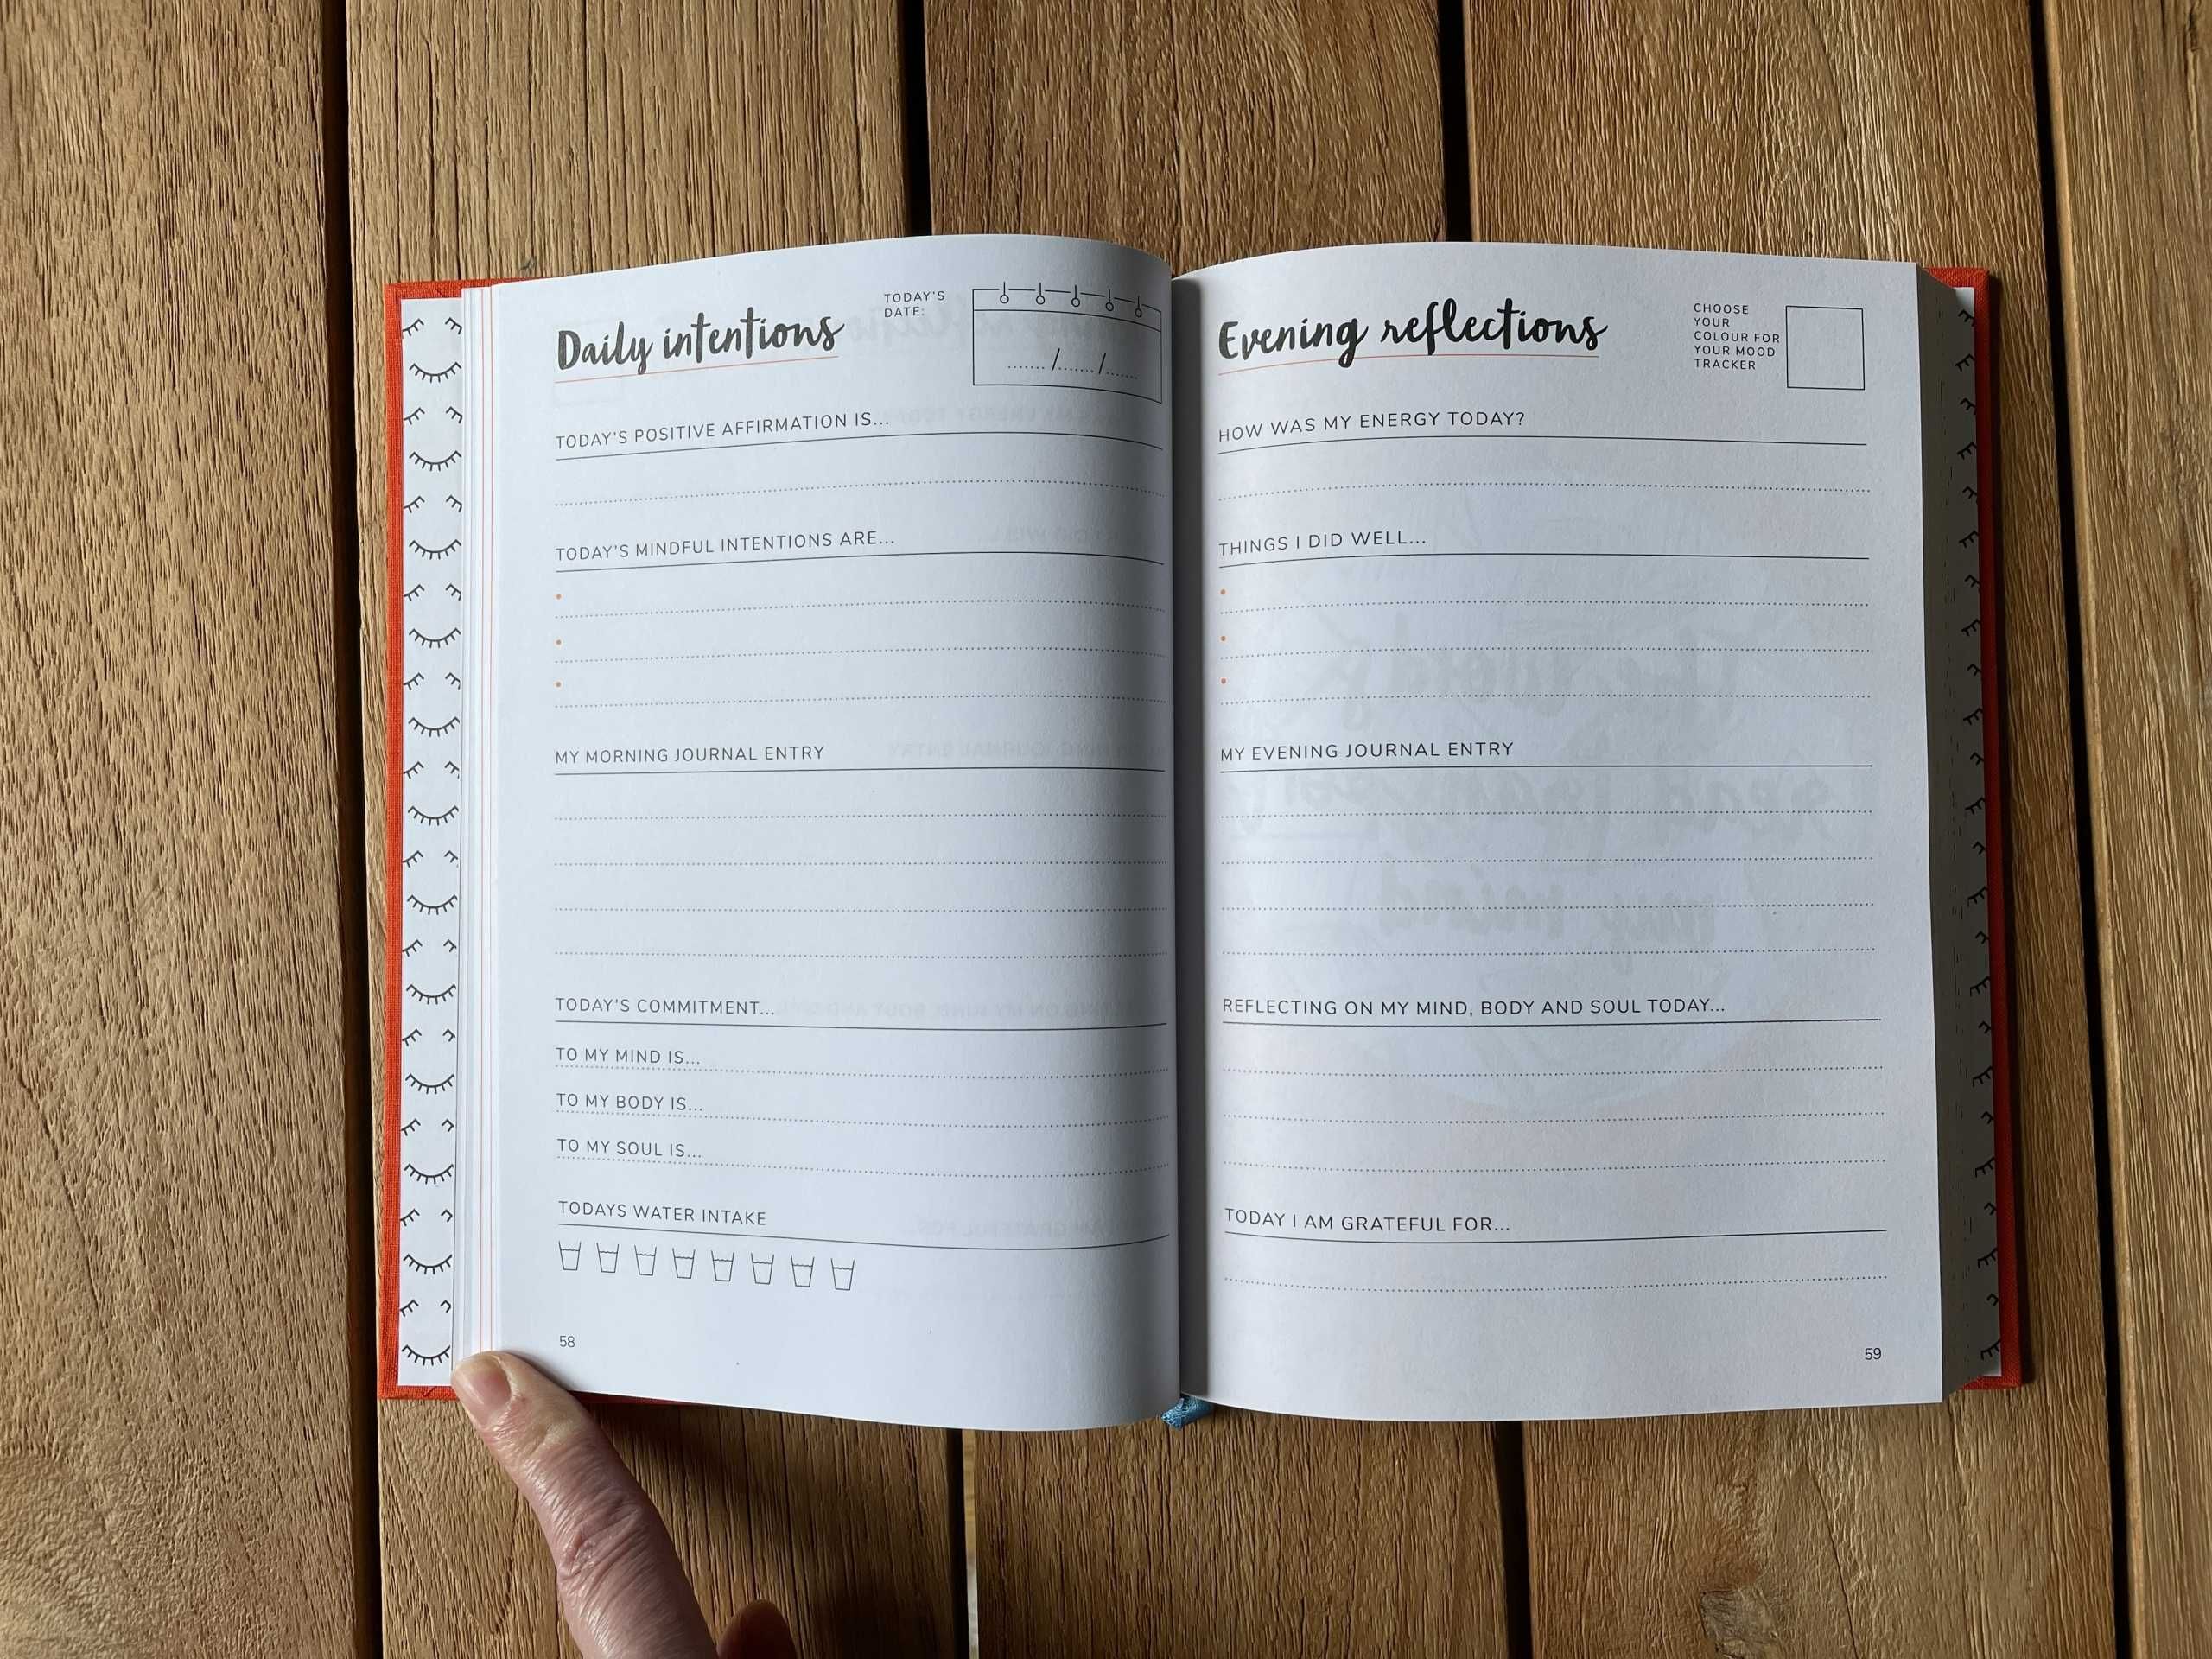 Daily intentions
TODAY'S
DATE:
....... /....... /.......
TODAY'S POSITIVE AFFIRMATION IS...
TODAY'S MINDFUL INTENTIONS ARE...
MY MORNING JOURNAL ENTRY
TODAY'S COMMITMENT...
TO MY MIND IS...
TO MY BODY IS...
TO MY SOUL IS...
TODAYS WATER INTAKE
58
Evening reflections
CHOOSE
YOUR
COLOUR FOR
YOUR MOOD
TRACKER
HOW WAS MY ENERGY TODAY?
THINGS I DID WELL...
MY EVENING JOURNAL ENTRY
REFLECTING ON MY MIND, BODY AND SOUL TODAY...
TODAY I AM GRATEFUL FOR...
59